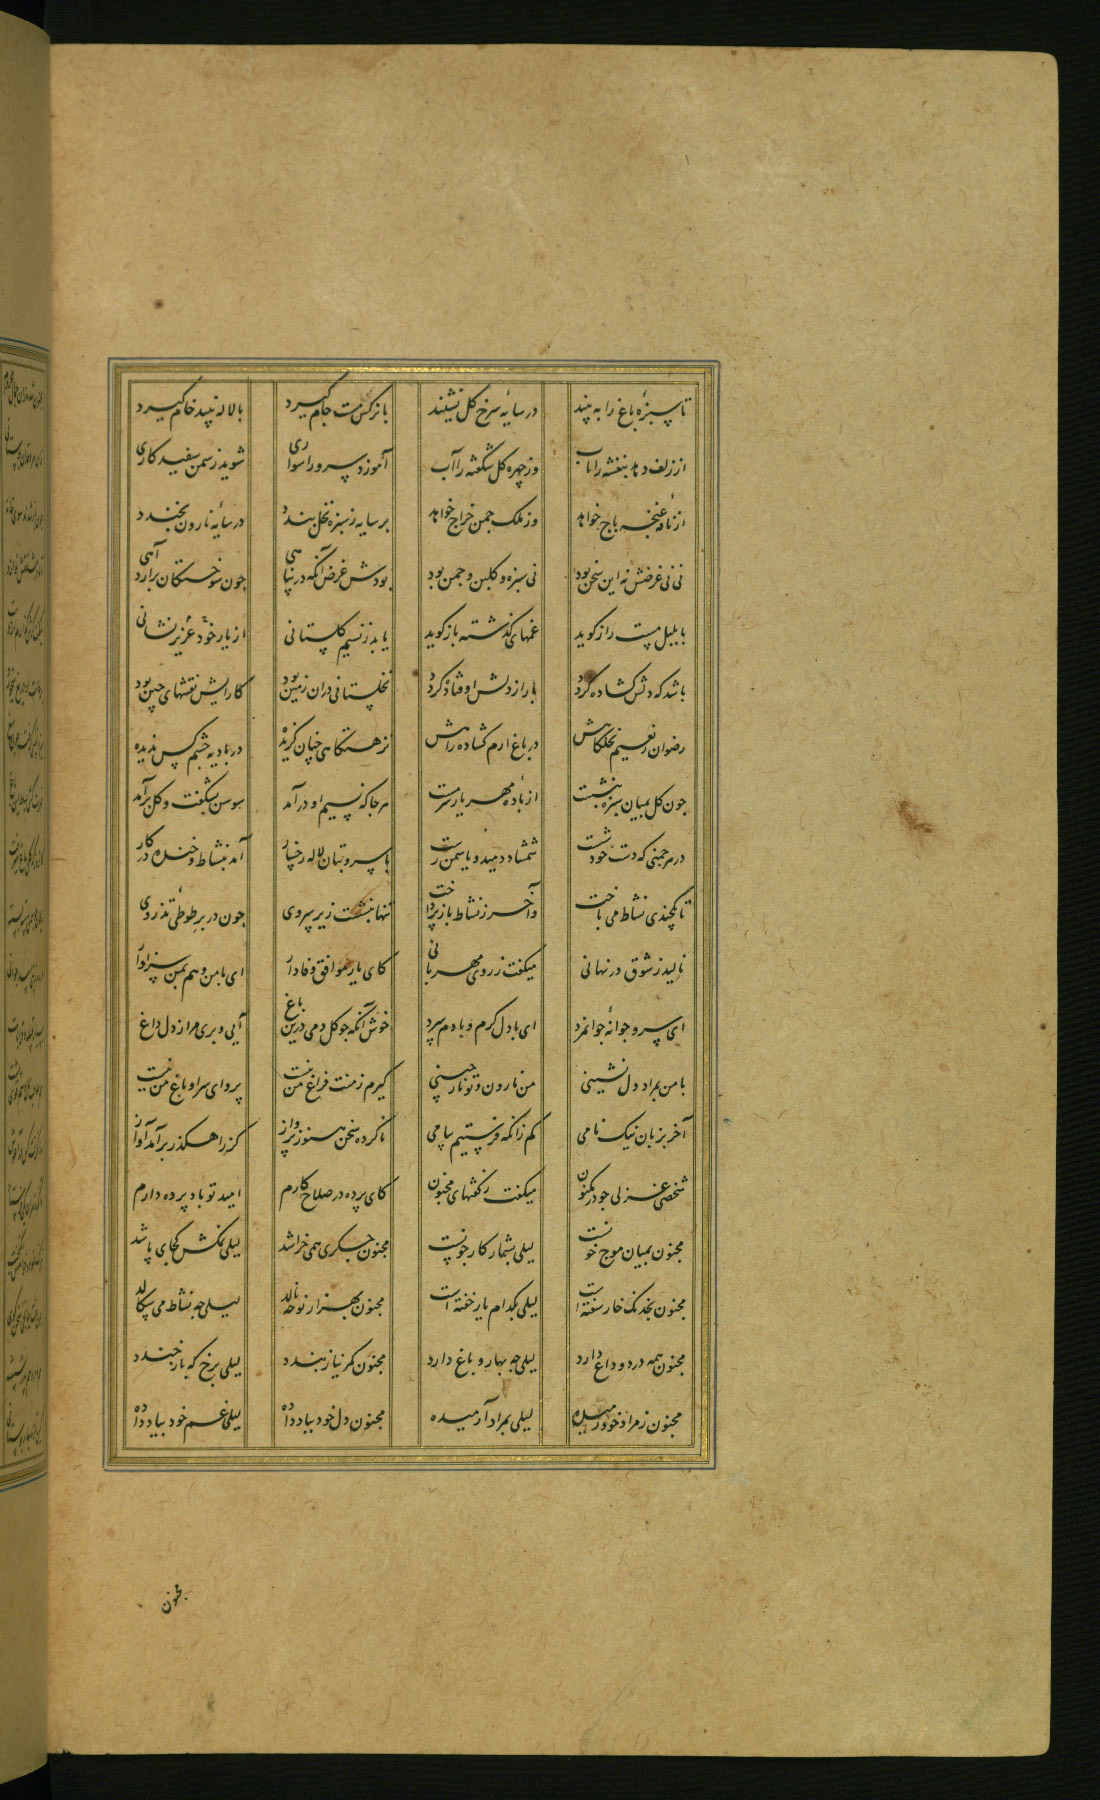 تا سبزهٔ باغ را به بیند در سایهٔ سرخ گل نشیند با نرگس مست جام گیرد با لاله نبید خام گیرد
از زلف دهد بنفشه را تاب وز چهره گل شگفته را آب آموزد سرو را سواری شوید ز سمن سفید کاری
از نافهٔ غنچه باج خواهد وز ملک چمن خراج خواهد بر سایه ز سبزه نخل بندد در سایهٔ نارون بخندد
نی نی غرضش نه این سخن بود نی سبزه و گلبن و چمن بود بودش غرض آنکه در پناهی چون سوختگان برارد آهی
با بلبل مست راز گوید غمهای گذشته باز گوید یابد ز نسیم گلستانی از یار خود عزیز نشانی
باشد که دلش گشاده گردد بار از دلش اوفتاده گردد نخلستانی دران زمین بود کارایش نقشهای چین بود
رضوان ز نعیم نخلگاهش در باغ ارم گشاده راهش نزهتگاهی چنان گزیده در بادیه چشم کس ندیده
چون گل بمیان سبزه بنشست از بادهٔ مهر یار سرمست هر جا که نسیم او درآمد سوسن بشگفت و گل برآمد
در هر چمنی که دست خود شست شمشاد دمید و یاسمن رست با سرو بتان لاله رخسار آمد بنشاط و خنده در کار
تا یکچندی نشاط می باخت وآخر ز نشاط باز پرداخت تنها بنشست زیر سروی چون در بر طوطئی تذروی
نالید ز شوق در نهانی میگفت ز روی مهربانی کای یار موافق وفادار ای با من و هم بمن سزاوار
ای سرو جوانهٔ جوانمرد ای با دل گرم و با دم سرد خوش آنکه چو گل دمی درین باغ آیی و بری مرا ز دل داغ
با من بمراد دل نشینی من نارون و تو نار چینی گیرم ز منت فراغ من نیست پروای سرا و باغ من نیست
آخر بزبان نیک نامی کم زانکه فرستیم پیامی ناکرده سخن هنوز پرواز کز راهگذر برآمد آواز
شخصی غزلی چو در مکنون میگفت ز گفتهای مجنون کای پرده در صلاح کارم امید تو باد پرده دارم
مجنون بمیان موج خونست لیلی بشمار کار چونست مجنون جگری همی خراشد لیلی نمکش کجای پاشد
مجنون بخدنگ خار سفته است لیلی بکدام یار خفته است مجنون بهزار نوحه نالد لیلی چه نشاط می سگالد
مجنون همه درد و داغ دارد لیلی چه بهار و باغ دارد مجنون کمر نیاز بندد لیلی برخ که باز خندد
مجنون ز مراد خود رمیده لیلی بمراد آرمیده مجنون دل خود بباد داده لیلی غم خود بباد داده
مجنون